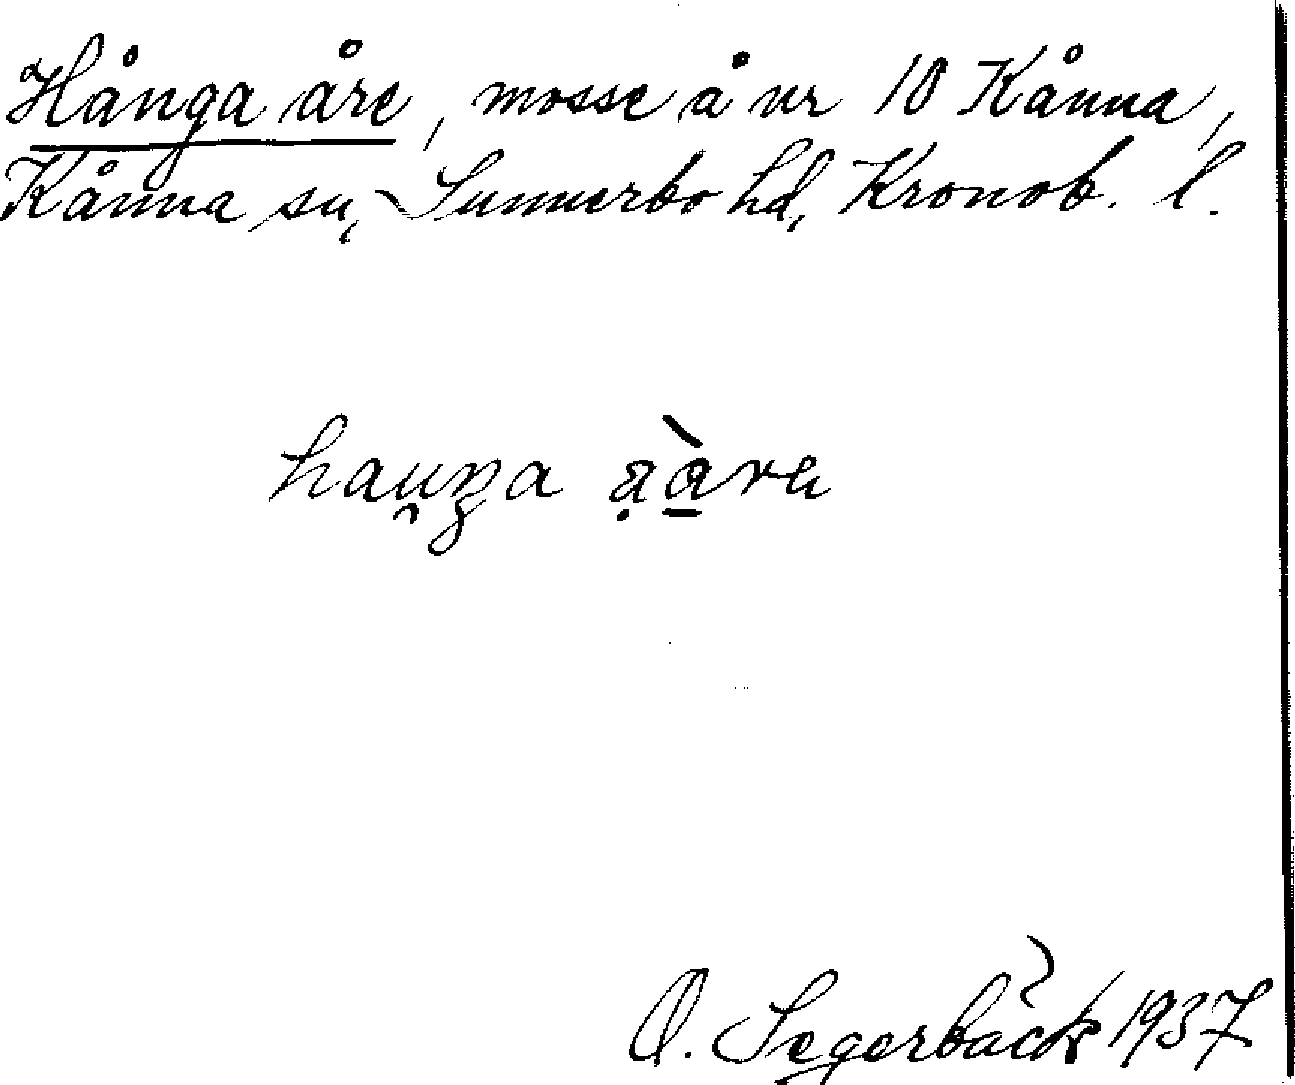 Hånga åre, mosse å nr 10 Kånna,
Kånna sn, Sunnerbo hd, Kronob. l.
O. Segerbäck 1937